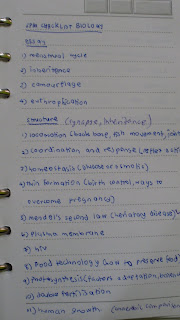 SPM CHECKLIST BIOLOGY
ESSAY
1) menstrual cycle
2) inheritance
3) camouflage
4) euthrophication
Structure (synapse, Inheritance)
1) locomotion (back bone, fish movement, joint
2) coordination and response (reflex
3) homeostasis (glucose or osmotic)
4) twin formation (birth control, ways to
overcome pregnancy)
5) mendel's second law (heriatory disease)
6) plasma membrane
7) hiv
8) food technology (how to preserve food
9) photosynthesis (factors & adaptation,
10) double fertilization
11) human growth